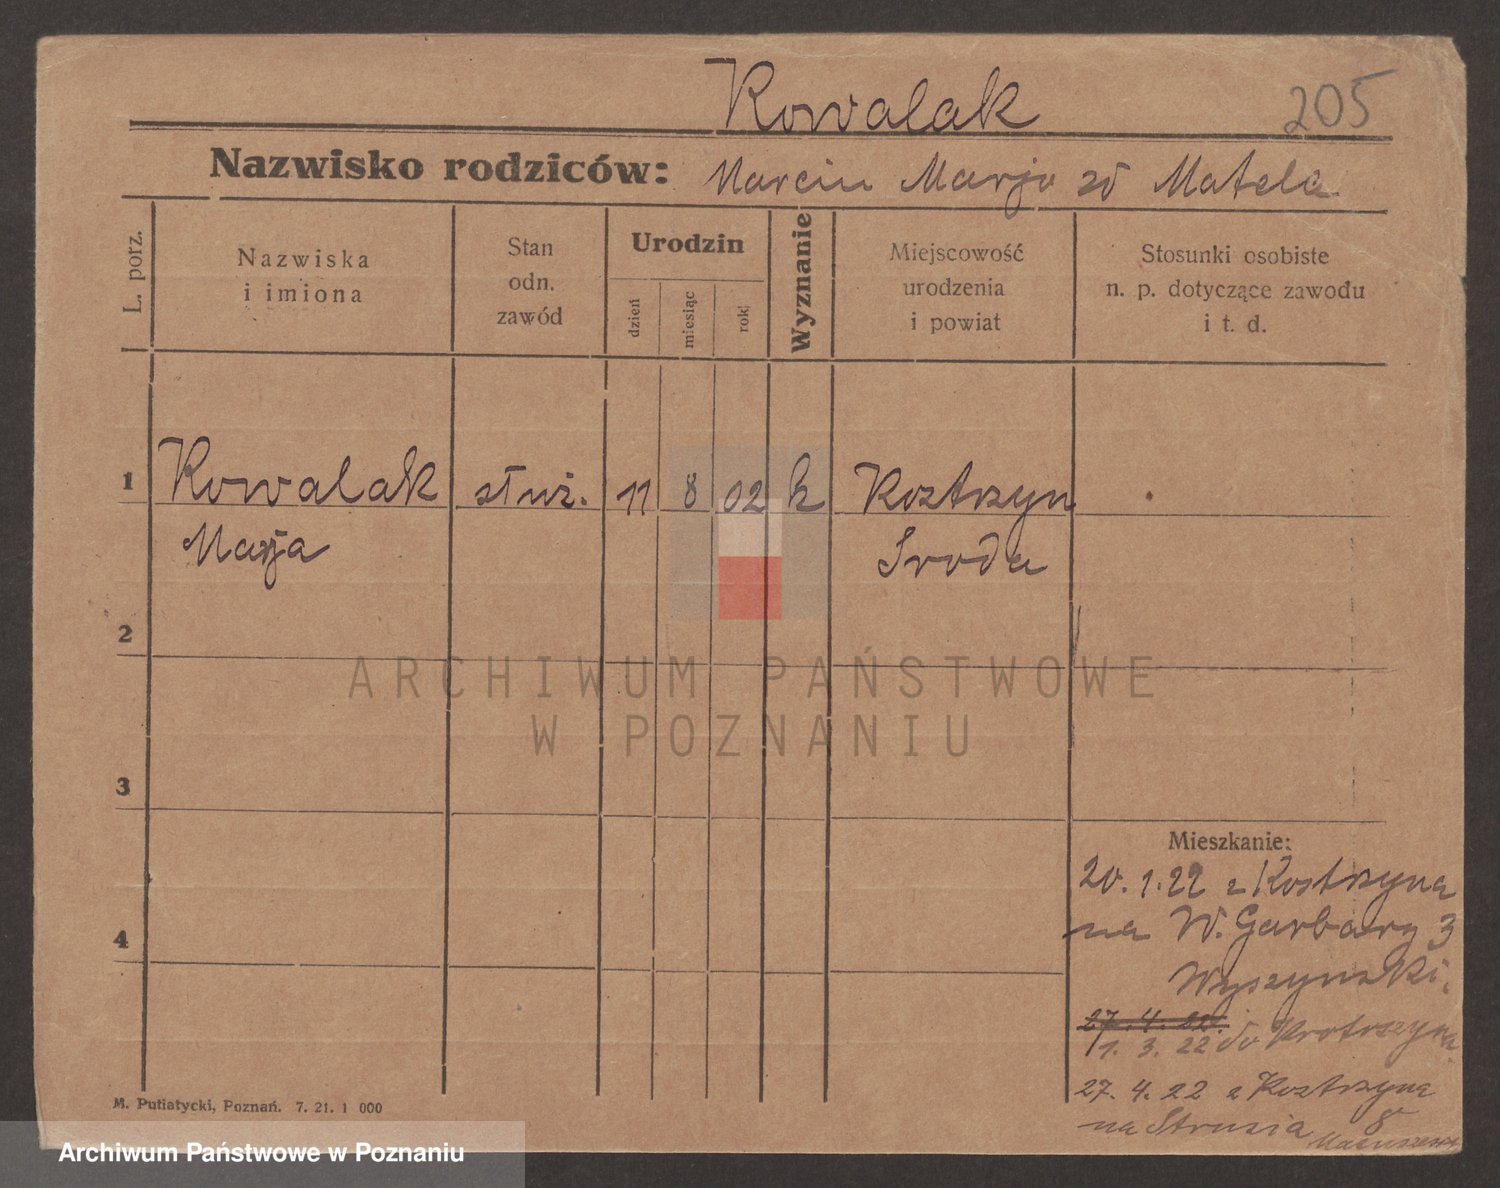 Kowalak 205
Nazwisko rodziców: Marcin Marja zd Matela
L. porz.
Nazwiska
i imiona
Stan
odn.
zawód
Urodzin
dzień
miesiąc
rok
Wyznanie
Miejscowość
urodzenia
i powiat
Stosunki osobiste
n. p. dotyczące zawodu
i t. d.
1 Kowalak służ. 11 8 02 k Kostrzyn
Marja Sroda
2
ARCHIWUM PAŃSTWOWE
W POZNANIU
3
Mieszkanie:
20. 1. 22 z Kostrzyna
4 na W. Garbary 3
Wyszynski.
27. 4. 22.
1. 3. 22 do
27. 4. 22 z Kostrzyna
na Strusia 8
M. Putiatycki, Poznań. 7. 21. 1 000
Archiwum Państwowe w Poznaniu